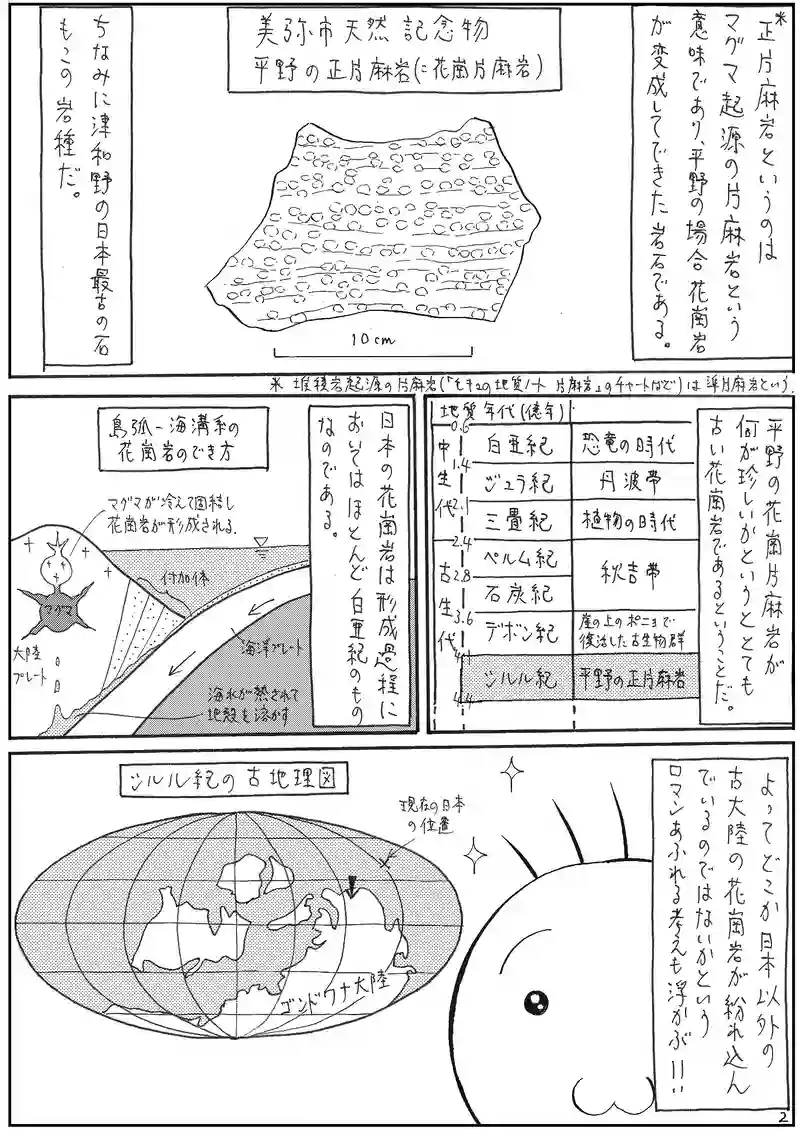 ※正片麻岩というのは
マグマ起源の片麻岩という
意味であり、平野の場合花崗岩
が変成してできた岩石である。
美弥市天然記念物
平野の正片麻岩(=花崗片麻岩)
10cm
ちなみに津和野の日本最古の石
もこの岩種だ。
※堆積岩起源の片麻岩(「モチ2の地質ノート 片麻岩」のチャートなど)は準片麻岩という。
平野の花崗片麻岩が
何が珍しいかというととても
古い花崗岩であるということだ。
地質年代(億年)
0.6
中生代
白亜紀
恐竜の時代
1.4
ジュラ紀
丹波帯
2.1
三畳紀
植物の時代
2.4
古生代
ペルム紀
秋吉帯
2.8
石炭紀
3.6
デボン紀
崖の上のポニョで
復活した古生物群
4.1
シルル紀
平野の正片麻岩
4.4
日本の花崗岩は形成過程に
おいてはほとんど白亜紀のもの
なのである。
島弧-海溝系の
花崗岩のでき方
マグマが冷えて固結し
花崗岩が形成される.
付加体
マグマ
大陸
プレート
海洋プレート
海水が熱されて
地殻を溶かす
よってどこか日本以外の
古大陸の花崗岩が紛れ込ん
でいるのではないかという
ロマンあふれる考えも浮かぶ!!…
シルル紀の古地理図
現在の日本
の位置
ゴンドワナ大陸
2